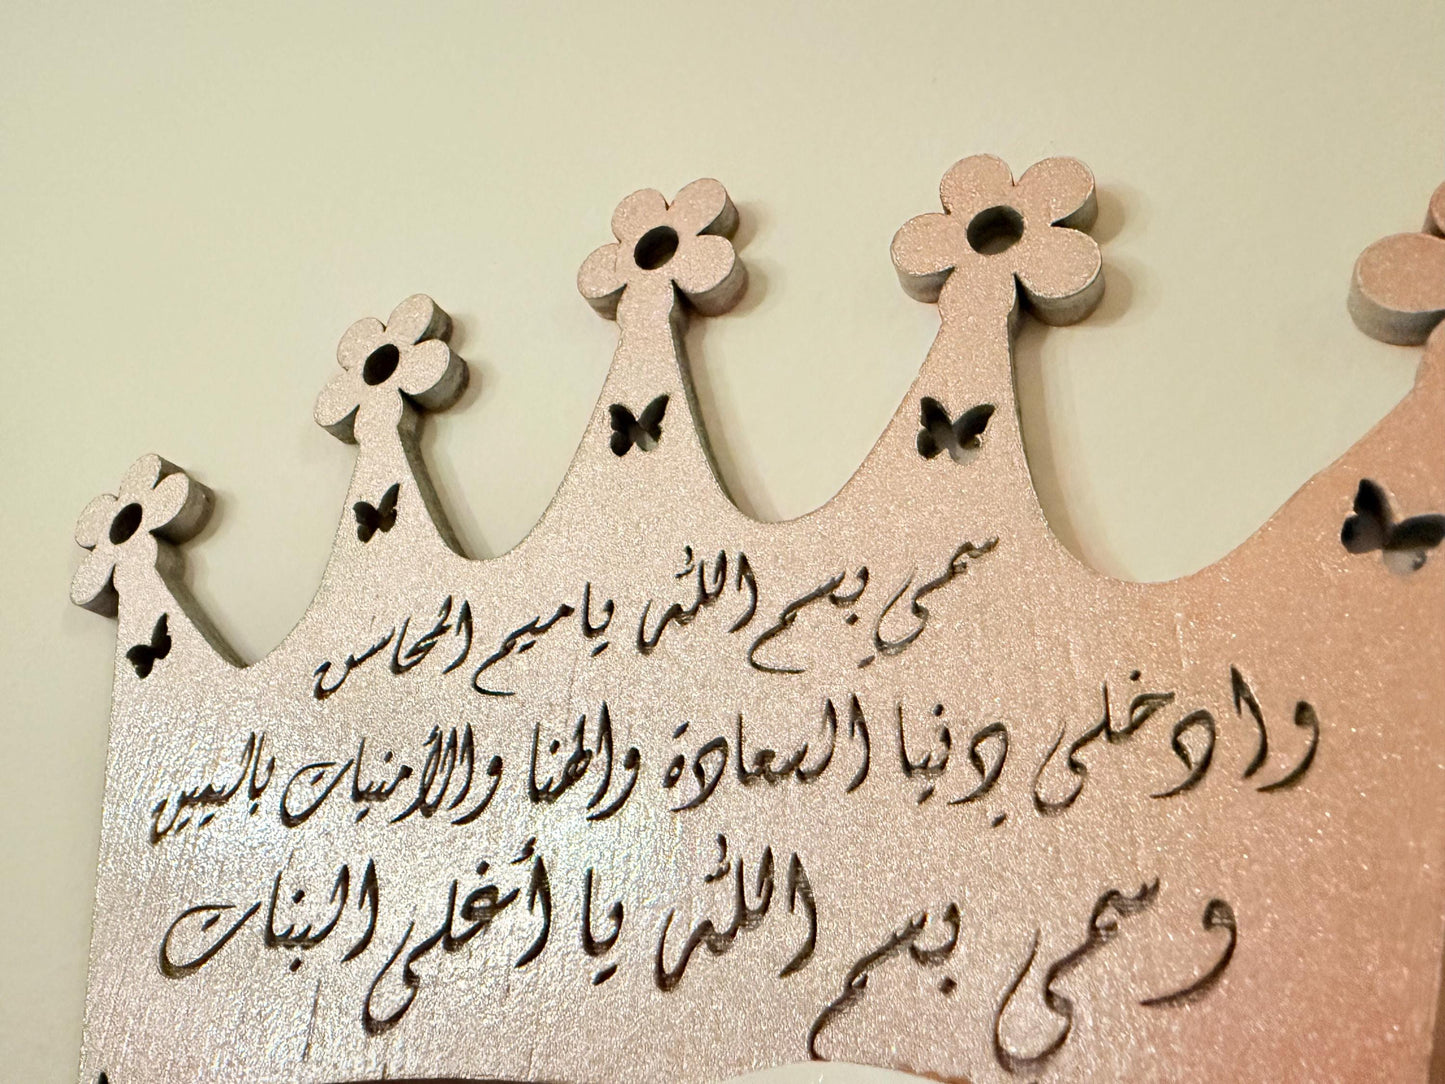 سمي بسم الله ياميم المحاسن
وادخلي دنيا السعادة والهنا والأمنيات باليمين
وسمي بسم الله يا أغلى البنات